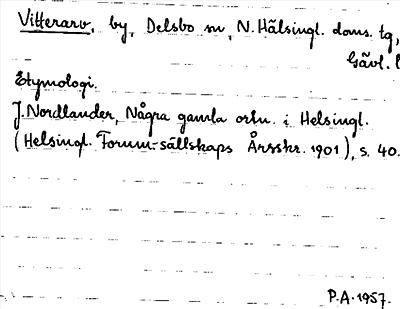 Vitterarv, by, Delsbo sn, N. Hälsingl. doms. tg,
Gävl. l
Etymologi.
J. Nordlander, Några gamla ortn. i Helsingl.
(Helsingl. Forum-sällskaps Årsskr. 1901), s. 40.
P.A. 1957.